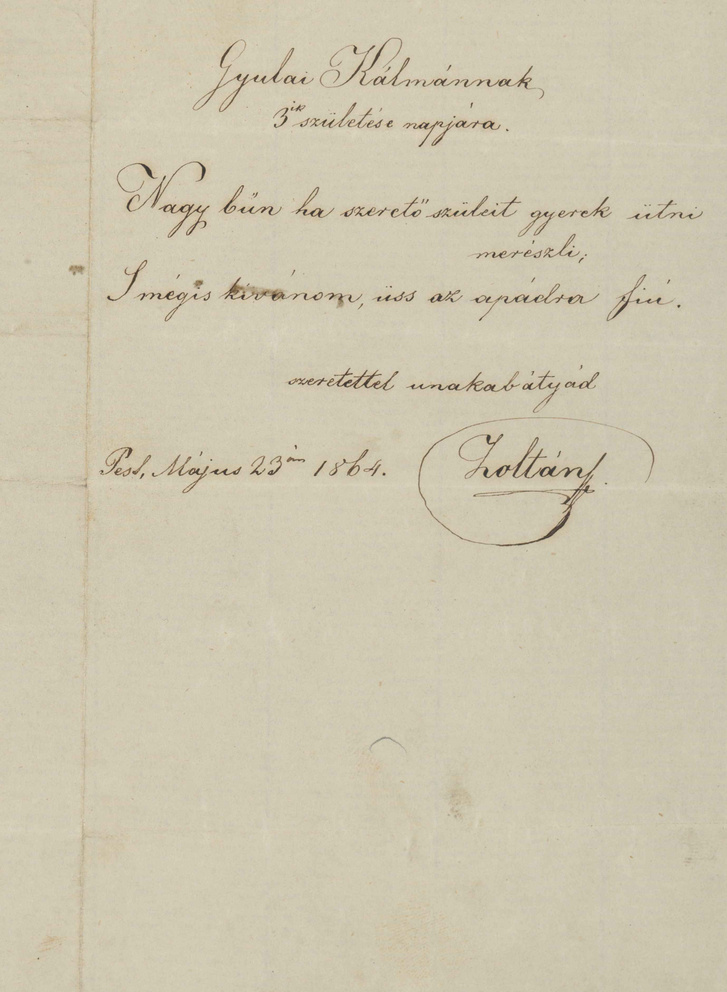 Gyulai Kálmánnak
3ik születése napjára.
Nagy bűn ha szerető szüleit gyerek ütni
merészli;
S mégis kivánom, üss az apádra fiú.
szeretettel unakabátyád
Pest, Május 23án 1864.
Zoltán